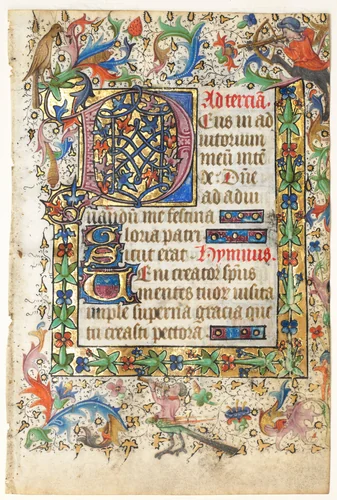 Ad tercia.
Deus in ad
iutorium
meū intē
de. Dn̄e
ad adiu
uandū me festina
Gloria patri
Sicut erat. Hymnus.
Ueni creator sp̄us
mentes tuoꝝ uisita
imple superna gracia que
tu creasti pectora.